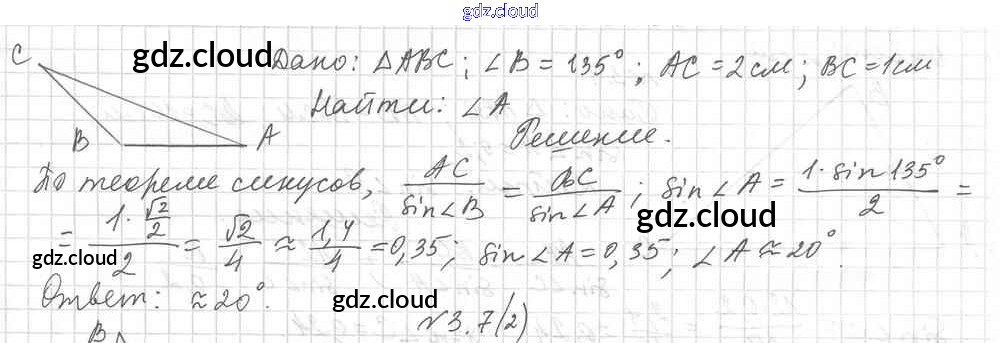 gdz.cloud
gdz.cloud
C
Дано: △ABC; ∠B = 135°; AC = 2 см; BC = 1 см
Найти: ∠A
B A
Решение.
По теореме синусов, AC/sin∠B = BC/sin∠A; sin∠A = 1·sin135°/2 =
= 1·√2/2/2 = √2/4 ≈ 1,4/4 = 0,35; sin∠A = 0,35; ∠A ≈ 20°.
gdz.cloud
gdz.cloud
Ответ: ≈ 20°.
gdz.cloud
№3.7(2)
B